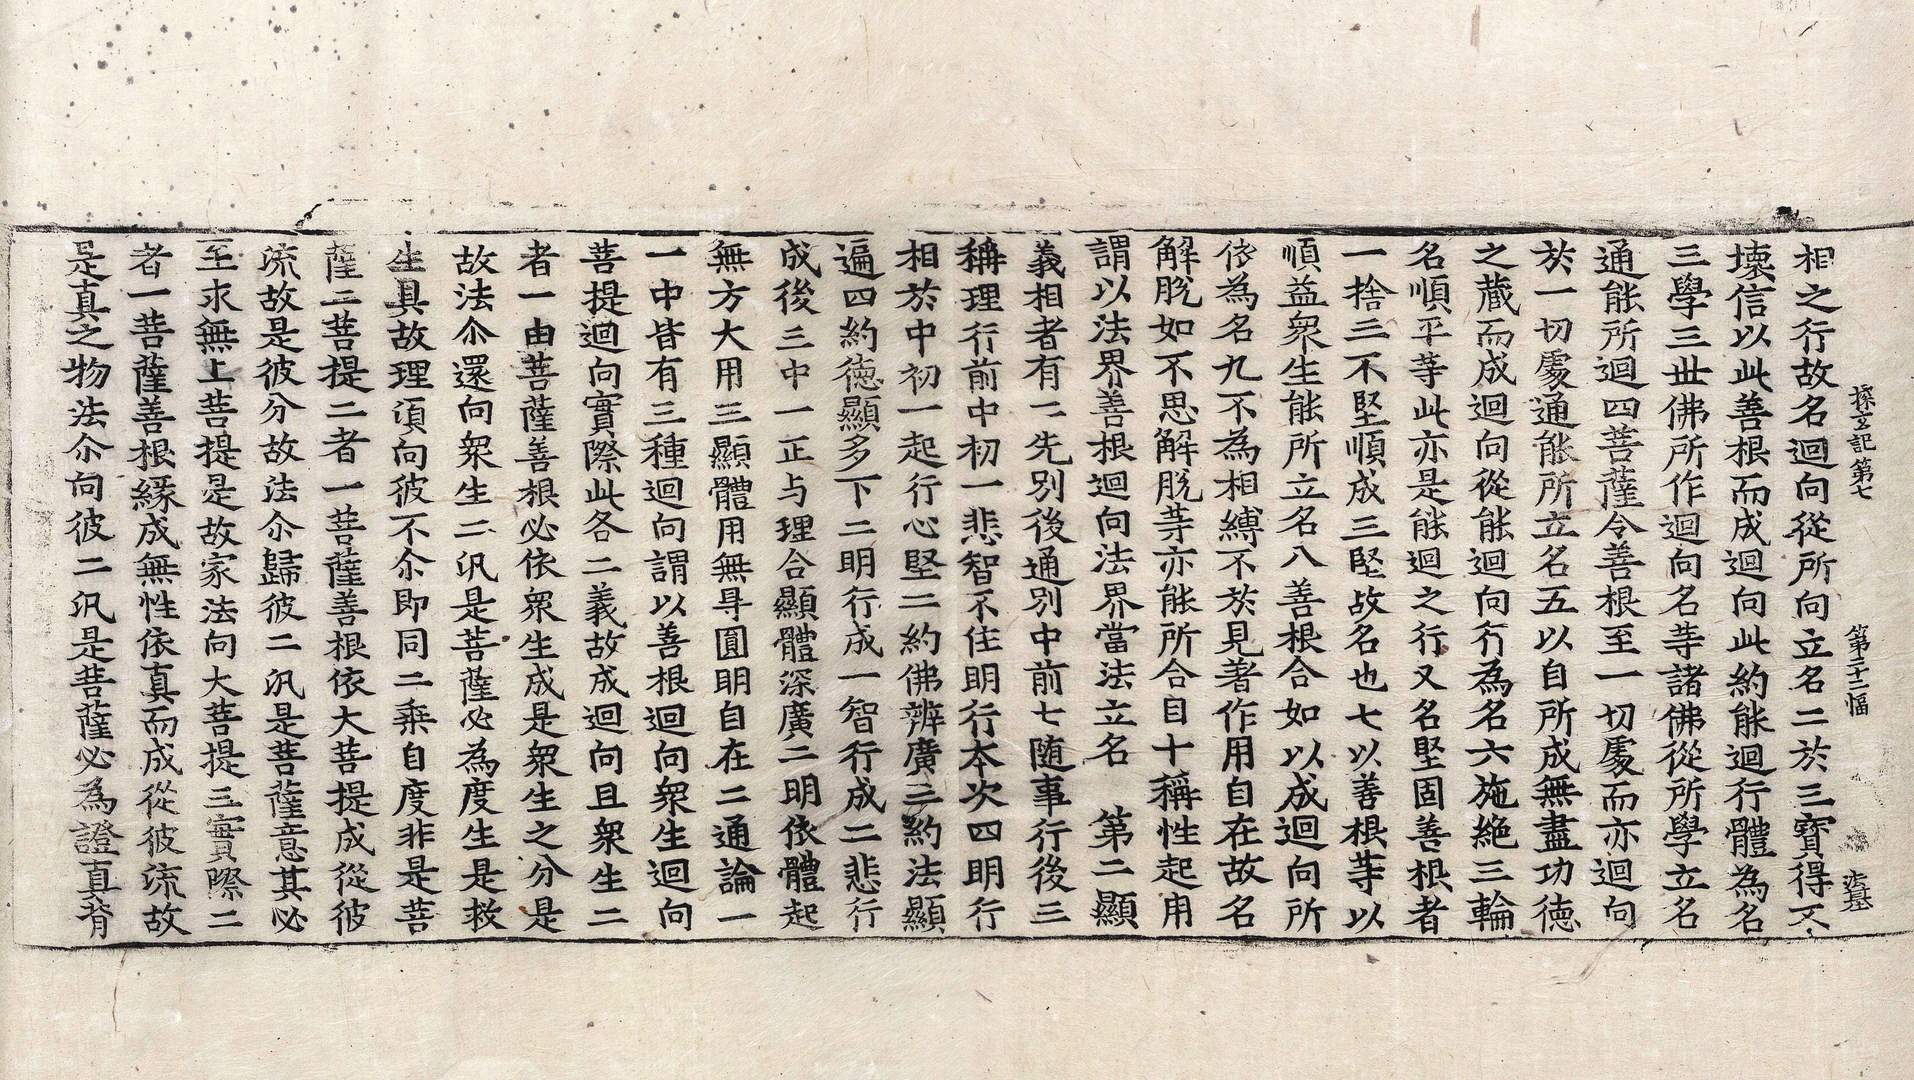 探玄記第七　第二十二幅　法基
相之行故名迴向從所向立名二於三寶得不
壞信以此善根而成迴向此約能迴行體為名
三學三世佛所作迴向名等諸佛從所學立名
通能所迴四菩薩令善根至一切處而亦迴向
於一切處通能所立名五以自所成無盡功德
之藏而成迴向從能迴向行為名六施絶三輪
名順平等此亦是能迴之行又名堅固善根者
一捨三不堅順成三堅故名也七以善根等以
順益衆生能所立名八善根合如以成迴向所
依為名九不為相縛不於見著作用自在故名
解脫如不思解脫等亦能所合目十稱性起用
謂以法界善根迴向法界當法立名　第二顯
義相者有二先別後通別中前七随事行後三
稱理行前中初一悲智不住明行本次四明行
相於中初一起行心堅二約佛辨廣三約法顯
遍四約德顯多下二明行成一智行成二悲行
成後三中一正与理合顯體深廣二明依體起
無方大用三顯體用無㝵圓明自在二通論一
一中皆有三種迴向謂以善根迴向衆生迴向
菩提迴向實際此各二義故成迴向且衆生二
者一由菩薩善根必依衆生成是衆生之分是
故法尒還向衆生二汎是菩薩必為度生是救
生具故理須向彼不尒即同二乘自度非是菩
薩二菩提二者一菩薩善根依大菩提成從彼
流故是彼分故法尒歸彼二汎是菩薩意其必
至求無上菩提是故家法向大菩提三實際二
者一菩薩善根緣成無性依真而成從彼流故
是真之物法尒向彼二汎是菩薩必為證真背